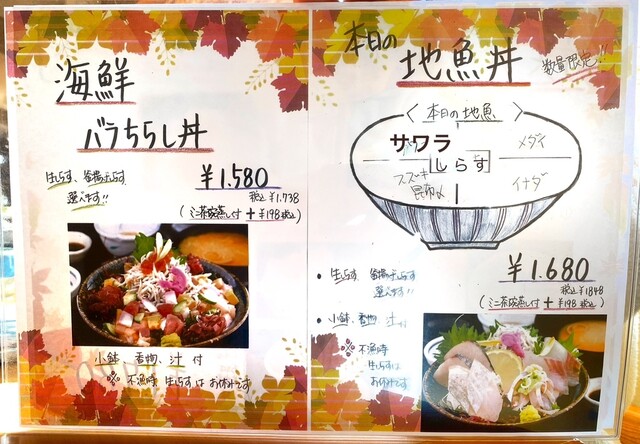 海鮮
バラちらし丼
生しらす、釜揚げしらす
選べます!!
¥1.580
税込¥1.738
(ミニ茶碗蒸し付+¥198税込)
小鉢、香物、汁付
※不漁時 生しらすはお休みです
本日の
地魚丼
数量限定!!
〈本日の地魚〉
サワラ
メダイ
しらす
スズキ
昆布〆
イナダ
• 生しらす、釜揚げしらす
選べます!!
¥1.680
税込¥1848
(ミニ茶碗蒸し付+¥198税込)
• 小鉢、香物、汁付
※不漁時
生しらすは
お休みです